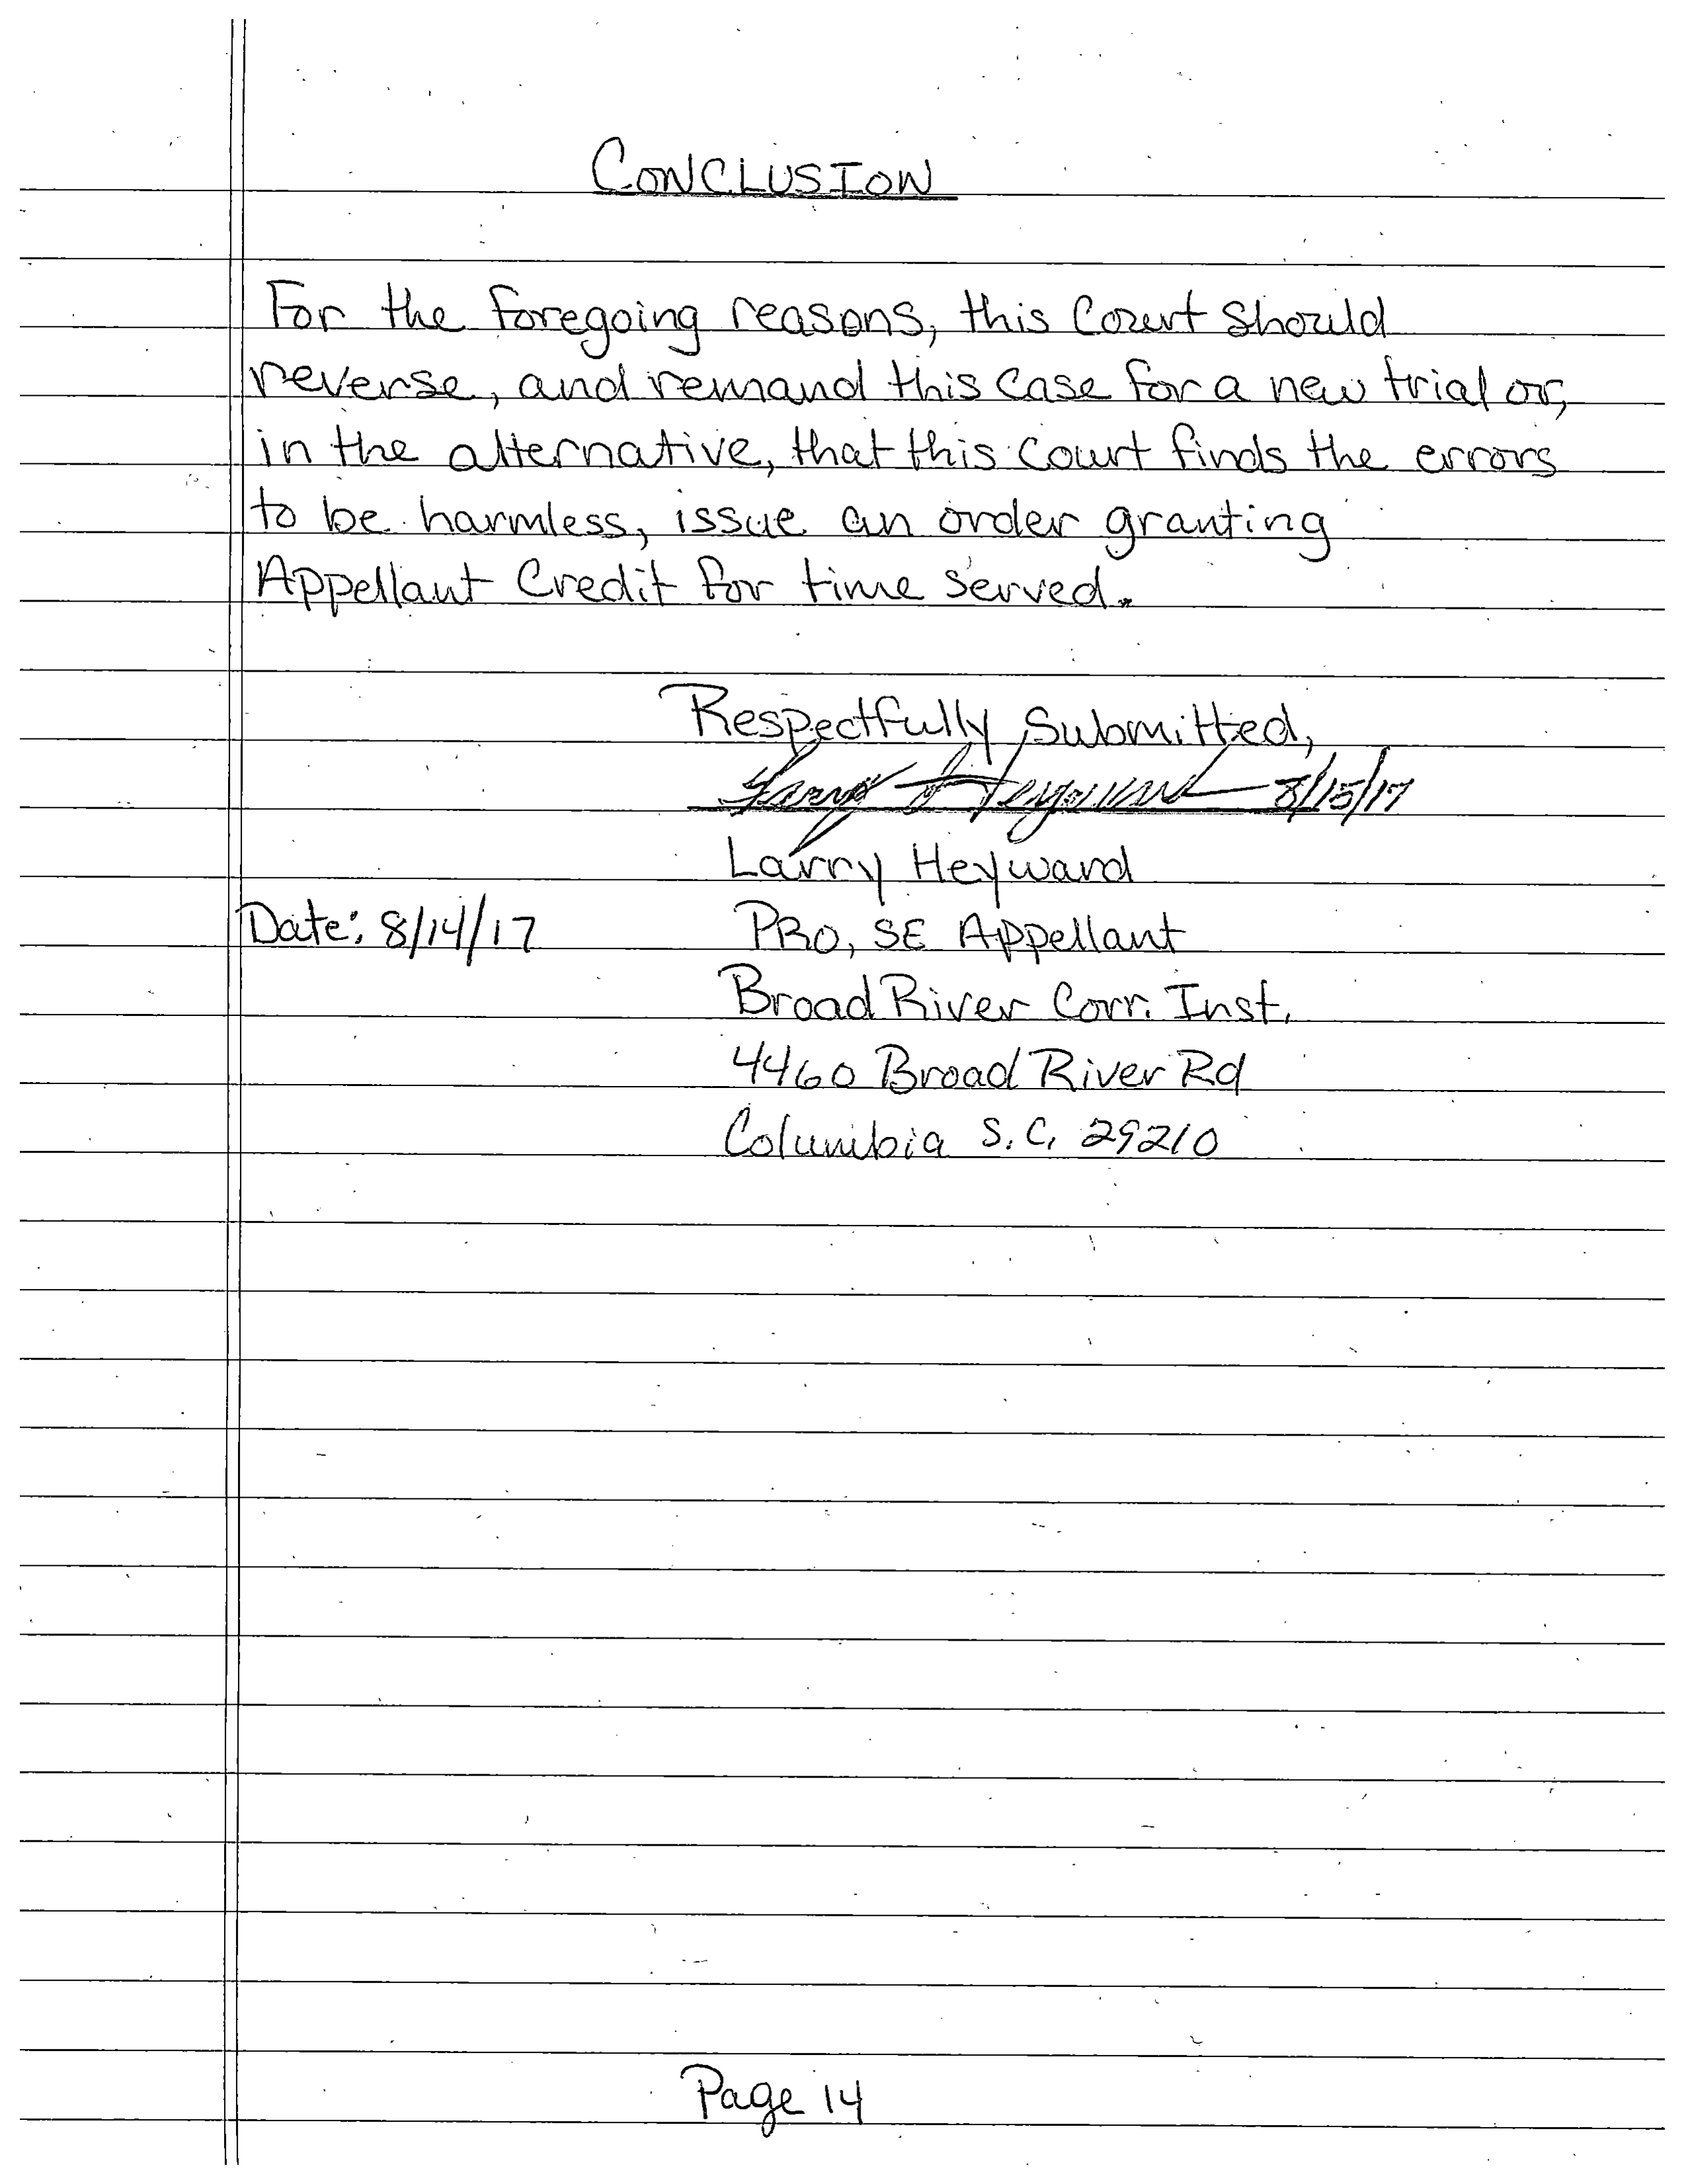 CONCLUSION
For the foregoing reasons, this Court should
reverse, and remand this case for a new trial or,
in the alternative, that this court finds the errors
to be harmless, issue an order granting
Appellant Credit for time served.
Respectfully Submitted,
Larry Heyward 8/15/17
Larry Heyward
Date: 8/14/17 PRO, SE Appellant
Broad River Corr. Inst.
4460 Broad River Rd
Columbia S.C. 29210
Page 14